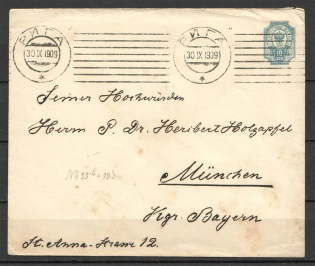 РИГА РИГА
30 IX 1909 30 IX 1909
Seiner Hochwürden
Herrn P. Dr. Heribert Holzapfel
München
Kgr. Bayern
St. Anna-Strasse 12.